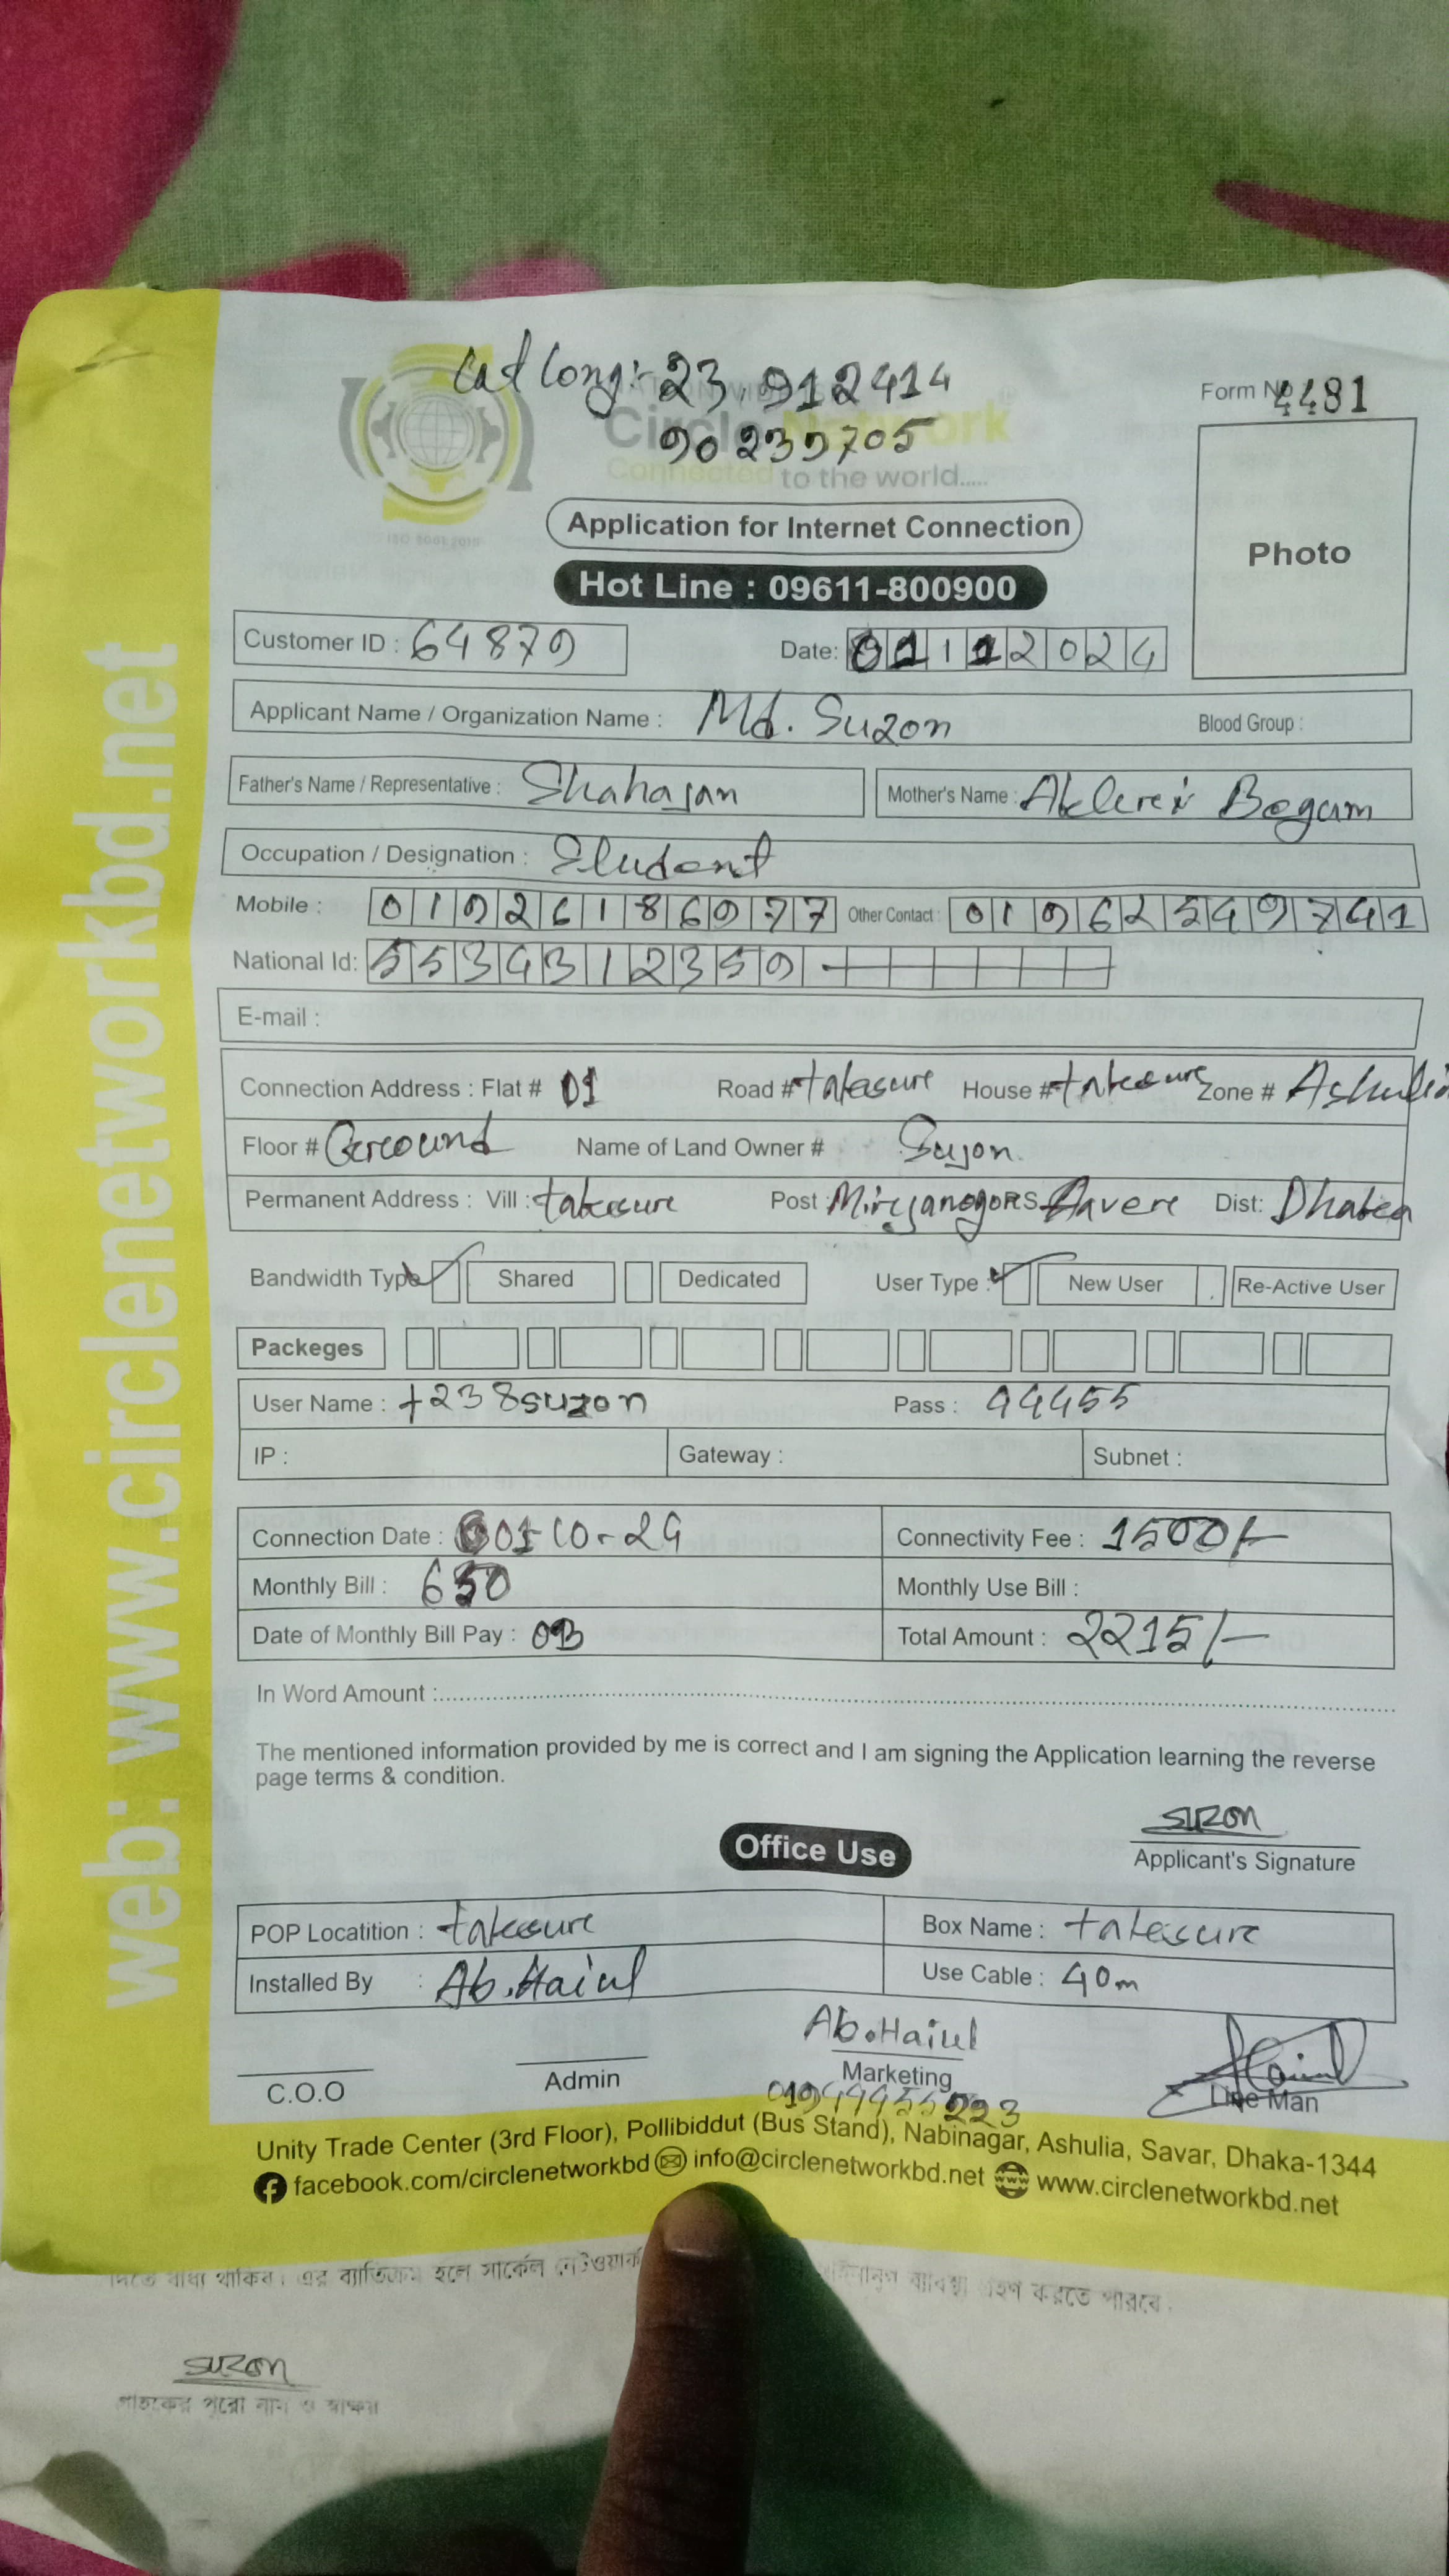 Lat long:- 23.912414
90239705
Form No 4481
Circle Network
Connected to the world.....
ISO 9001:2015
Photo
Application for Internet Connection
Hot Line : 09611-800900
Customer ID : 64879
Date: 01122024
Applicant Name / Organization Name : Md. Suzon
Blood Group :
Father's Name / Representative : Shahajan
Mother's Name : Begam
Occupation / Designation : Student
Mobile : 01926186977
Other Contact : 01962549741
National Id: 5534312359
E-mail :
Connection Address : Flat # 01 Road # takesure House # takesure Zone # Ashulia
Floor # Geround Name of Land Owner # Sujon
Permanent Address : Vill : takesure Post : P.S. Savere Dist: Dhakea
Bandwidth Type Shared Dedicated User Type : New User Re-Active User
Packeges
User Name : t238suzon Pass : 44455
IP : Gateway : Subnet :
Connection Date : 01-10-24 Connectivity Fee : 1500/-
Monthly Bill : 630 Monthly Use Bill :
Date of Monthly Bill Pay : Total Amount : 2215/-
In Word Amount :
The mentioned information provided by me is correct and I am signing the Application learning the reverse
page terms & condition.
suzon
Applicant's Signature
Office Use
POP Locatition : takesure Box Name : takesure
Installed By : Ab.Haiul Use Cable : 40m
Ab.Haiul
C.O.O Admin Marketing Line Man
Unity Trade Center (3rd Floor), Pollibiddut (Bus Stand), Nabinagar, Ashulia, Savar, Dhaka-1344
facebook.com/circlenetworkbd info@circlenetworkbd.net www www.circlenetworkbd.net
web: www.circlenetworkbd.net
দিতে বাধ্য থাকিব। এর ব্যাতিক্রম হলে সার্কেল নেটওয়ার্ক ব্যাবস্থা গ্রহণ করতে পারবে।
suzon
গ্রাহকের পুরো নাম ও স্বাক্ষর